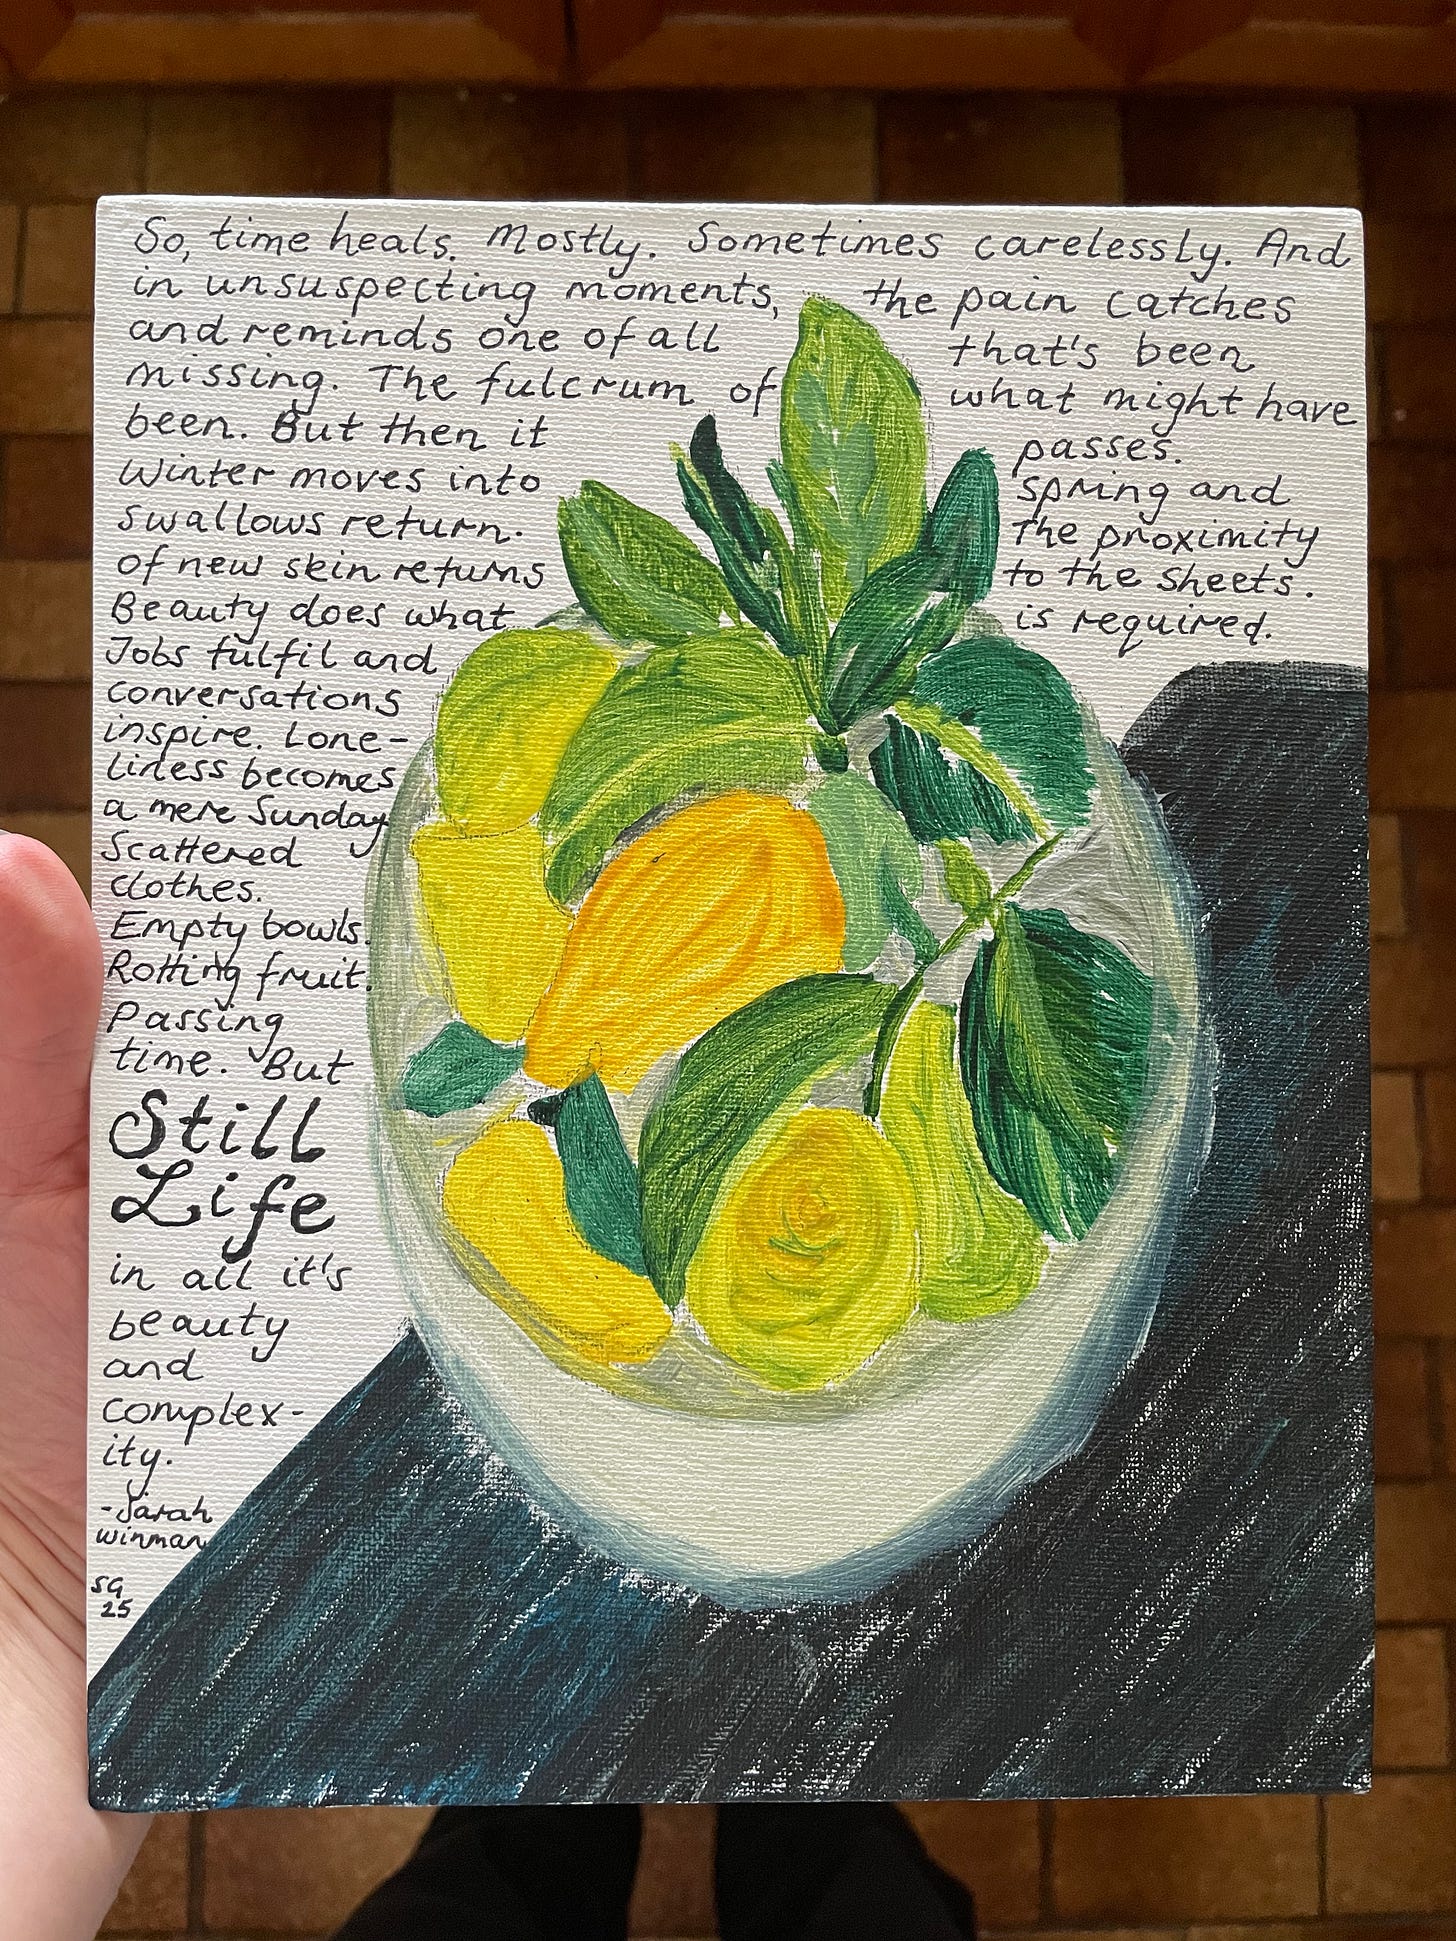 So, time heals. Mostly. Sometimes carelessly. And
in unsuspecting moments, the pain catches
and reminds one of all that's been
missing. The fulcrum of what might have
been. But then it passes.
Winter moves into spring and
swallows return. The proximity
of new skin returns to the sheets.
Beauty does what is required.
Jobs fulfil and
conversations
inspire. Lone-
liness becomes
a mere Sunday
Scattered
clothes.
Empty bowls.
Rotting fruit.
Passing
time. But
Still
Life
in all it's
beauty
and
complex-
ity.
-Sarah
winman
SG
25